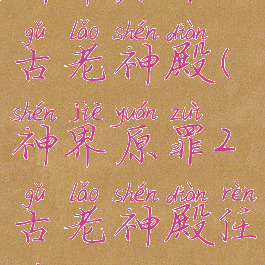 gǔ lǎo shén diàn
古老神殿(
shén jiè yuán zuì
神界原罪2
gǔ lǎo shén diàn rèn
古老神殿任